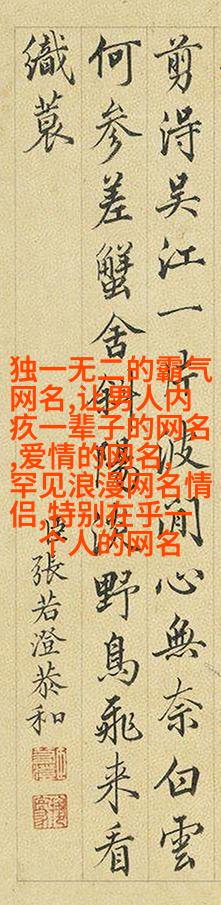 剪淂吴江一片波閒心無奈白雲
何参差蟹舍斜陽野鳥飛來看
織蓑
臣張若澄恭和
独一无二的霸气
网名,让男人内
疚一辈子的网名
,爱情的网名,
罕见浪漫网名情
侣,特别在乎一
个人的网名